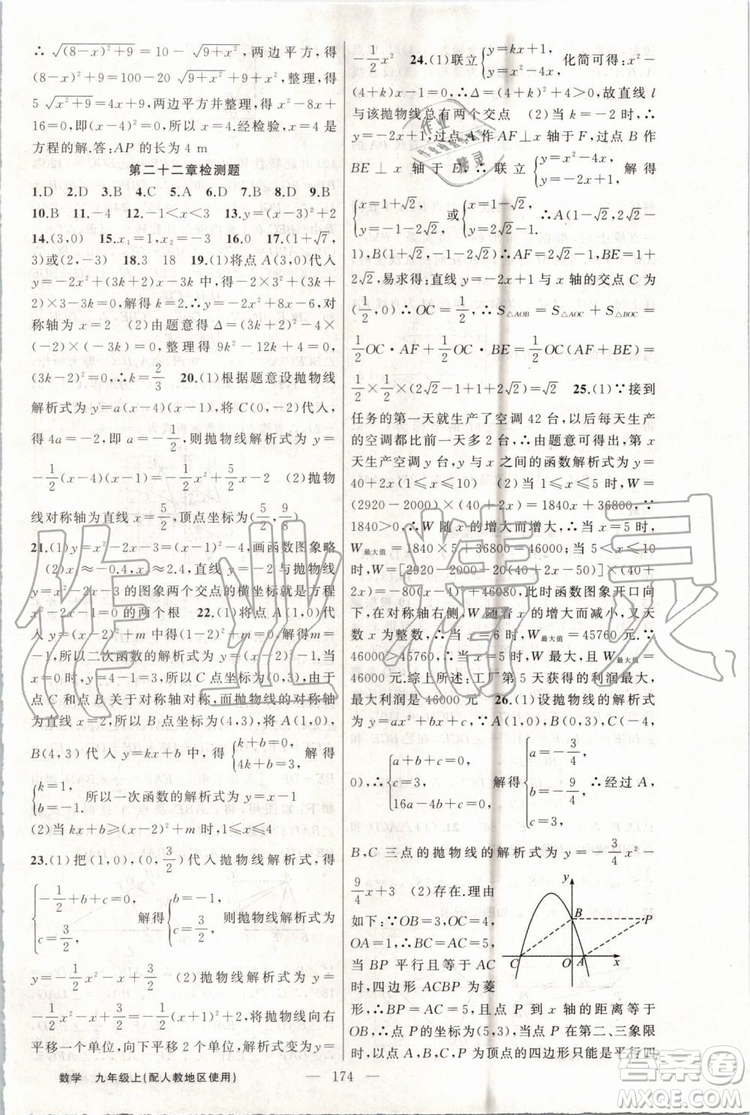 ∴ √((8-x)²+9) = √(9+x²), 两边平方, 得
(8-x)²+9=100-20√(x²+9)+x²+9, 整理, 得
5√(x²+9)=9+4x, 两边平方并整理, 得 x²-8x+
16=0, 即(x-4)²=0, 所以 x=4. 经检验, x=4 是
方程的解. 答: AP 的长为 4 m
第二十二章检测题
1.D 2.D 3.B 4.C 5.A 6.D 7.D 8.D 9.B
10.B 11.-4 12.-1<x<5 13.y=(x-3)²+2
14.(3,0) 15.x₁=-1,x₂=3 16.0 17.(1+√7,
3)或(2,-3) 18.3 19.(1)将点 A(3,0)代入
y=-kx²+(3k+2)x-3k, 得-k×3²+(3k+2)
×3-3k=0, 解得 k=2, ∴y=-2x²+8x-6, 对
称轴为 x=2 (2)由题意得 Δ=(3k+2)²-4×
(-k)×(-3k)=0, 整理得 9k²-12k²+12k+4
(3k-2)²=0, ∴k=2/3 20.(1)根据题意设抛物线
解析式为 y=a(x-4)(x-1), 将 C(0,-2)代入,
得 4a=-2, 即 a=-1/2, 则抛物线解析式为 y=
-1/2(x-4)(x-1)=-1/2x²+5/2x-2 (2)抛物
线对称轴为直线 x=5/2, 顶点坐标为(5/2, 9/8)
画函数图象略
(2)x₁≈-0.4,
的图象两个交点的横坐标就是方程
-2x-1=-2 的两个根 22.(1)将点 A(1,0)代
入 y=(x-2)²+m 中得(1-2)²+m=0, 解得 m=
-1, 所以二次函数的解析式为 y=(x-2)²-1. 当
x=0 时, y=4-1=3, 所以 C 点坐标为(0,3), 由于
点 C 和点 B 关于对称轴对称, 而抛物线的对称轴
为直线 x=2, 所以 B 点坐标为(4,3), 将 A(1,0),
B(4,3)代入 y=kx+b 得{k+b=0, 4k+b=3, 解得
{k=1, b=-1. 所以一次函数的解析式为 y=x-1
(2)当 kx+b≥(x-2)²+m 时, 1≤x≤4
23.(1)把(1,0),(0,3/2)代入抛物线解析式, 得
{-1/2+b+c=0, c=3/2, 解得{b=-1, c=3/2, 则抛物线解析式为
y=-1/2x²-x+3/2 (2)抛物线解析式为 y=
-1/2x²-x+3/2=-1/2(x+1)²+2, 将抛物线向右
平移一个单位, 向下平移 2 个单位, 解析式变为 y=
-1/2x² 24.(1)联立{y=kx+1, y=x²-4x, 化简可得: x²-
(4+k)x-1=0, ∴Δ=(4+k)²+4>0, 故直线 l
与该抛物线总有两个交点 (2)当 k=-2 时,
y=-2x+1, 过点 A 作 AF⊥x 轴于 F, 过点 B 作
BE⊥x 轴于 E, ∴联立{y=x²-4x, y=-2x+1, 解得
{x=1+√2, y=-1-2√2, 或{x=1-√2, y=2√2-1, ∴A(1-√2,2√2-
1),B(1+√2,-1-2√2), ∴AF=2√2-1,BE=1+
2√2, 易求得: 直线 y=-2x+1 与 x 轴的交点 C 为
(1/2,0), ∴OC=1/2, ∴S△AOB=S△AOC+S△BOC=
1/2OC·AF+1/2OC·BE=1/2OC(AF+BE)=
1/2×1/2×(2√2-1+1+2√2)=√2 25.(1)∵接到
任务的第一天就生产了空调 42 台, 以后每天生产
的空调都比前一天多 2 台, 由题意可得出, 第 x
天生产空调 y 台, y 与 x 之间的函数解析式为 y=
40+2x(1≤x≤10) (2)当 1≤x≤5 时, W=
(2920-2000)×(40+2x)=1840x+36800, ∵
1840>0, ∴W 随 x 的增大而增大, ∴当 x=5 时,
W最大值=1840×5+36800=46000; 当 5<x≤10
时, W=[2920-2000-20(40+2x-50)]×(40+
2x)=-80(x-4)²+46080, 此时函数图象开口向
下, 在对称轴右侧, W 随着 x 的增大而减小, 又天
数 x 为整数, ∴当 x=6 时, W最大值=45760 元. ∵
46000>45760, ∴当 x=5 时, W 最大, 且 W最大值=
46000 元. 综上所述: 工厂第 5 天获得的利润最大,
最大利润是 46000 元 26.(1)设抛物线的解析式
为 y=ax²+bx+c, ∵A(1,0),B(0,3),C(-4,
0), ∴{a+b+c=0, c=3, 16a-4b+c=0, 解得{a=-3/4, b=-9/4, c=3, ∴经过 A,
B,C 三点的抛物线的解析式为 y=-3/4x²-
9/4x+3 (2)存在. 理由
如下: ∵OB=3,OC=4,
OA=1, ∴BC=AC=5,
当 BP 平行且等于 AC
时, 四边形 ACBP 为菱
形, ∴BP=AC=5, 且点 P 到 x 轴的距离等于
OB, ∴点 P 的坐标为(5,3), 当点 P 在第二、三象限
时, 以点 A,B,C,P 为顶点的四边形只能
y
B
P
C
O
A
x
数学 九年级上(配人教地区使用) — 174 —
作业精灵
答案圈